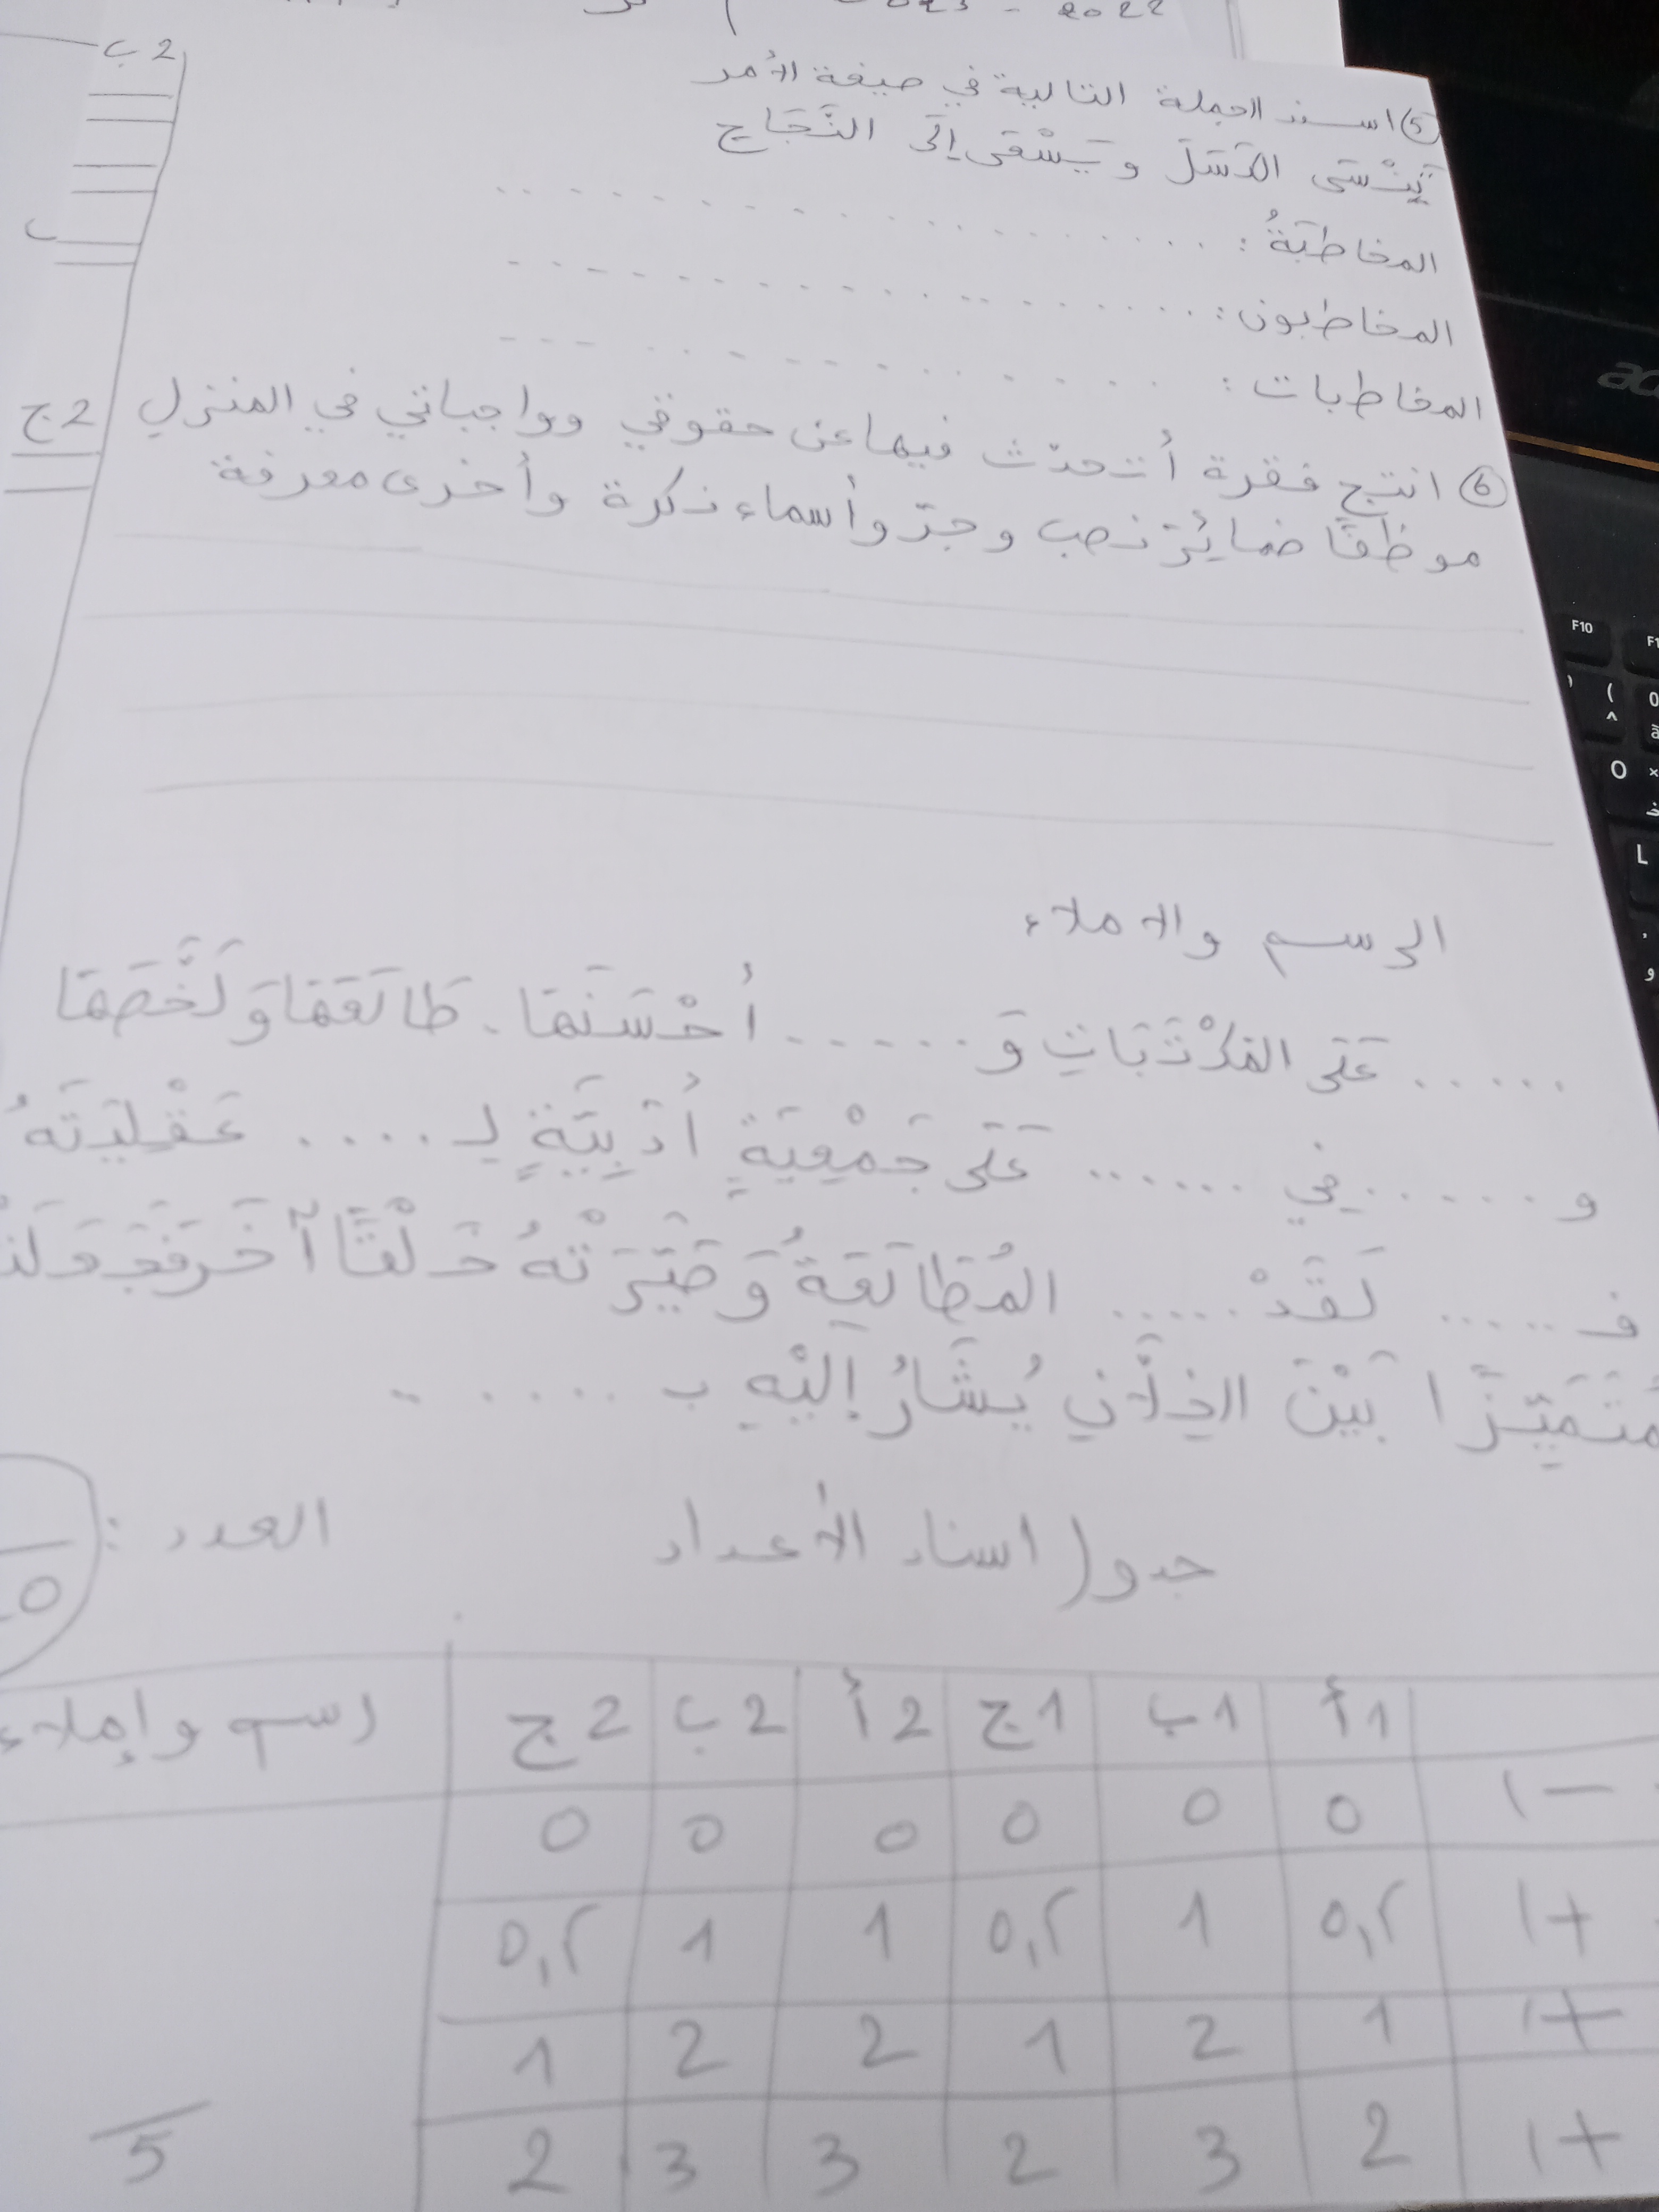 2022 - 2023
2 ب
5 اسند الجملة التالية في صيغة الأمر
يَنْسَى الكَسَلَ ويَسْعَى إِلَى النَّجَاحِ
المخاطبَةُ : . . . . . . . . . . . . . . . . .
المخاطبون : . . . . . . . . . . . . . . . . .
المخاطبات : . . . . . . . . . . . . . . .
6 انتج فقرة أتحدّث فيها عن حقوقي وواجباتي في المنزل
2 ج
موظفًا ضمائرَ نصب وجرّ وأسماء نكرة وأخرى معرفة
الرسم والاملاء
..... عَلَى المَكْتَبَاتِ وَ...... أَحْسَنَهَا. طَالَعَهَا وَلَخَّصَهَا
و...... فِي ...... عَلَى جَمْعِيَةٍ أَدَبِيَّةٍ لِـ .... عَقْلِيَتَهُ
فـ ..... لَقَدْ ..... المُطَالَعَةُ وَصَيَّرَتْهُ خَلْقًا آخَرَ فَجَعَلَتْ
مُتَمَيِّزًا بَيْنَ الخِلَّانِ يُشَارُ إِلَيْهِ بـ .....
جدول اسناد الأعداد
العدد :
أ1 ب1 ج1 أ2 ب2 ج2 رسم وإملاء
- ا 0 0 0 0 0 0
+ ا 0,5 1 0,5 1 1 0,5
+ ا 1 2 1 2 2 1
+ ا 2 3 2 3 3 2
5
acer
F10